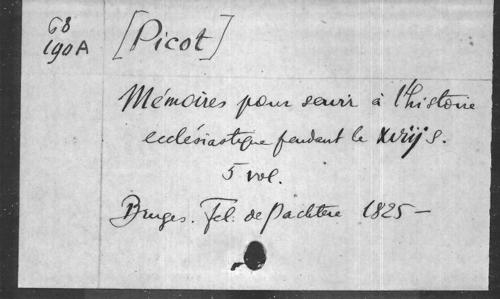 G8
190A
[Picot]
Mémoires pour servir à l'histoire
ecclésiastique pendant le xviij s.
5 vol.
Bruges. Fel. de Pachtere 1825 —